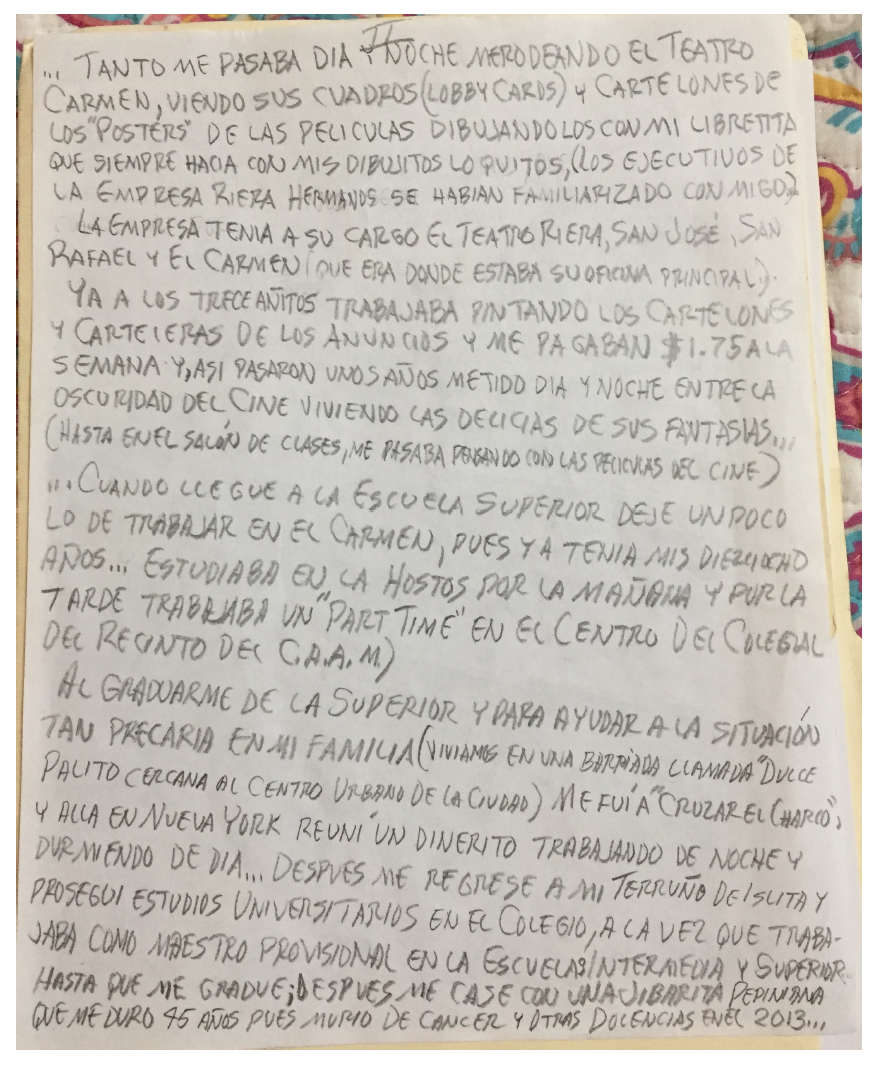 II
... TANTO ME PASABA DIA Y NOCHE MERODEANDO EL TEATRO
CARMEN, VIENDO SUS CUADROS (LOBBY CARDS) Y CARTELONES DE
LOS "POSTERS" DE LAS PELICULAS DIBUJANDOLOS CON MI LIBRETITA
QUE SIEMPRE HACIA CON MIS DIBUJITOS LOQUITOS, (LOS EJECUTIVOS DE
LA EMPRESA RIERA HERMANOS SE HABIAN FAMILIARIZADO CONMIGO.)
LA EMPRESA TENIA A SU CARGO EL TEATRO RIERA, SAN JOSÉ, SAN
RAFAEL Y EL CARMEN (QUE ERA DONDE ESTABA SU OFICINA PRINCIPAL).
YA A LOS TRECE AÑITOS TRABAJABA PINTANDO LOS CARTELONES
Y CARTELERAS DE LOS ANUNCIOS Y ME PAGABAN $1.75 A LA
SEMANA Y, ASI PASARON UNOS AÑOS METIDO DIA Y NOCHE ENTRE LA
OSCURIDAD DEL CINE VIVIENDO LAS DELICIAS DE SUS FANTASIAS...
(HASTA EN EL SALÓN DE CLASES, ME PASABA PENSANDO CON LAS PELICULAS DEL CINE)
... CUANDO LLEGUE A LA ESCUELA SUPERIOR DEJE UN POCO
LO DE TRABAJAR EN EL CARMEN, PUES YA TENIA MIS DIECIOCHO
AÑOS... ESTUDIABA EN LA HOSTOS POR LA MAÑANA Y POR LA
TARDE TRABAJABA UN "PART TIME" EN EL CENTRO DEL COLEGIAL
DEL RECINTO DEL C.A.A.M.)
AL GRADUARME DE LA SUPERIOR Y PARA AYUDAR A LA SITUACIÓN
TAN PRECARIA EN MI FAMILIA (VIVIAMOS EN UNA BARRIADA LLAMADA "DULCE
PALITO CERCANA AL CENTRO URBANO DE LA CIUDAD) ME FUÍ A "CRUZAR EL CHARCO",
Y ALLA EN NUEVA YORK REUNÍ UN DINERITO TRABAJANDO DE NOCHE Y
DURMIENDO DE DIA... DESPUES ME REGRESE A MI TERRUÑO DE ISLITA Y
PROSEGUI ESTUDIOS UNIVERSITARIOS EN EL COLEGIO, A LA VEZ QUE TRABA-
JABA COMO MAESTRO PROVISIONAL EN LA ESCUELAS INTERMEDIA Y SUPERIOR
HASTA QUE ME GRADUE; DESPUES ME CASE CON UNA JIBARITA PEPINIANA
QUE ME DURO 45 AÑOS PUES MURIO DE CANCER Y OTRAS DOLENCIAS EN EL 2013...